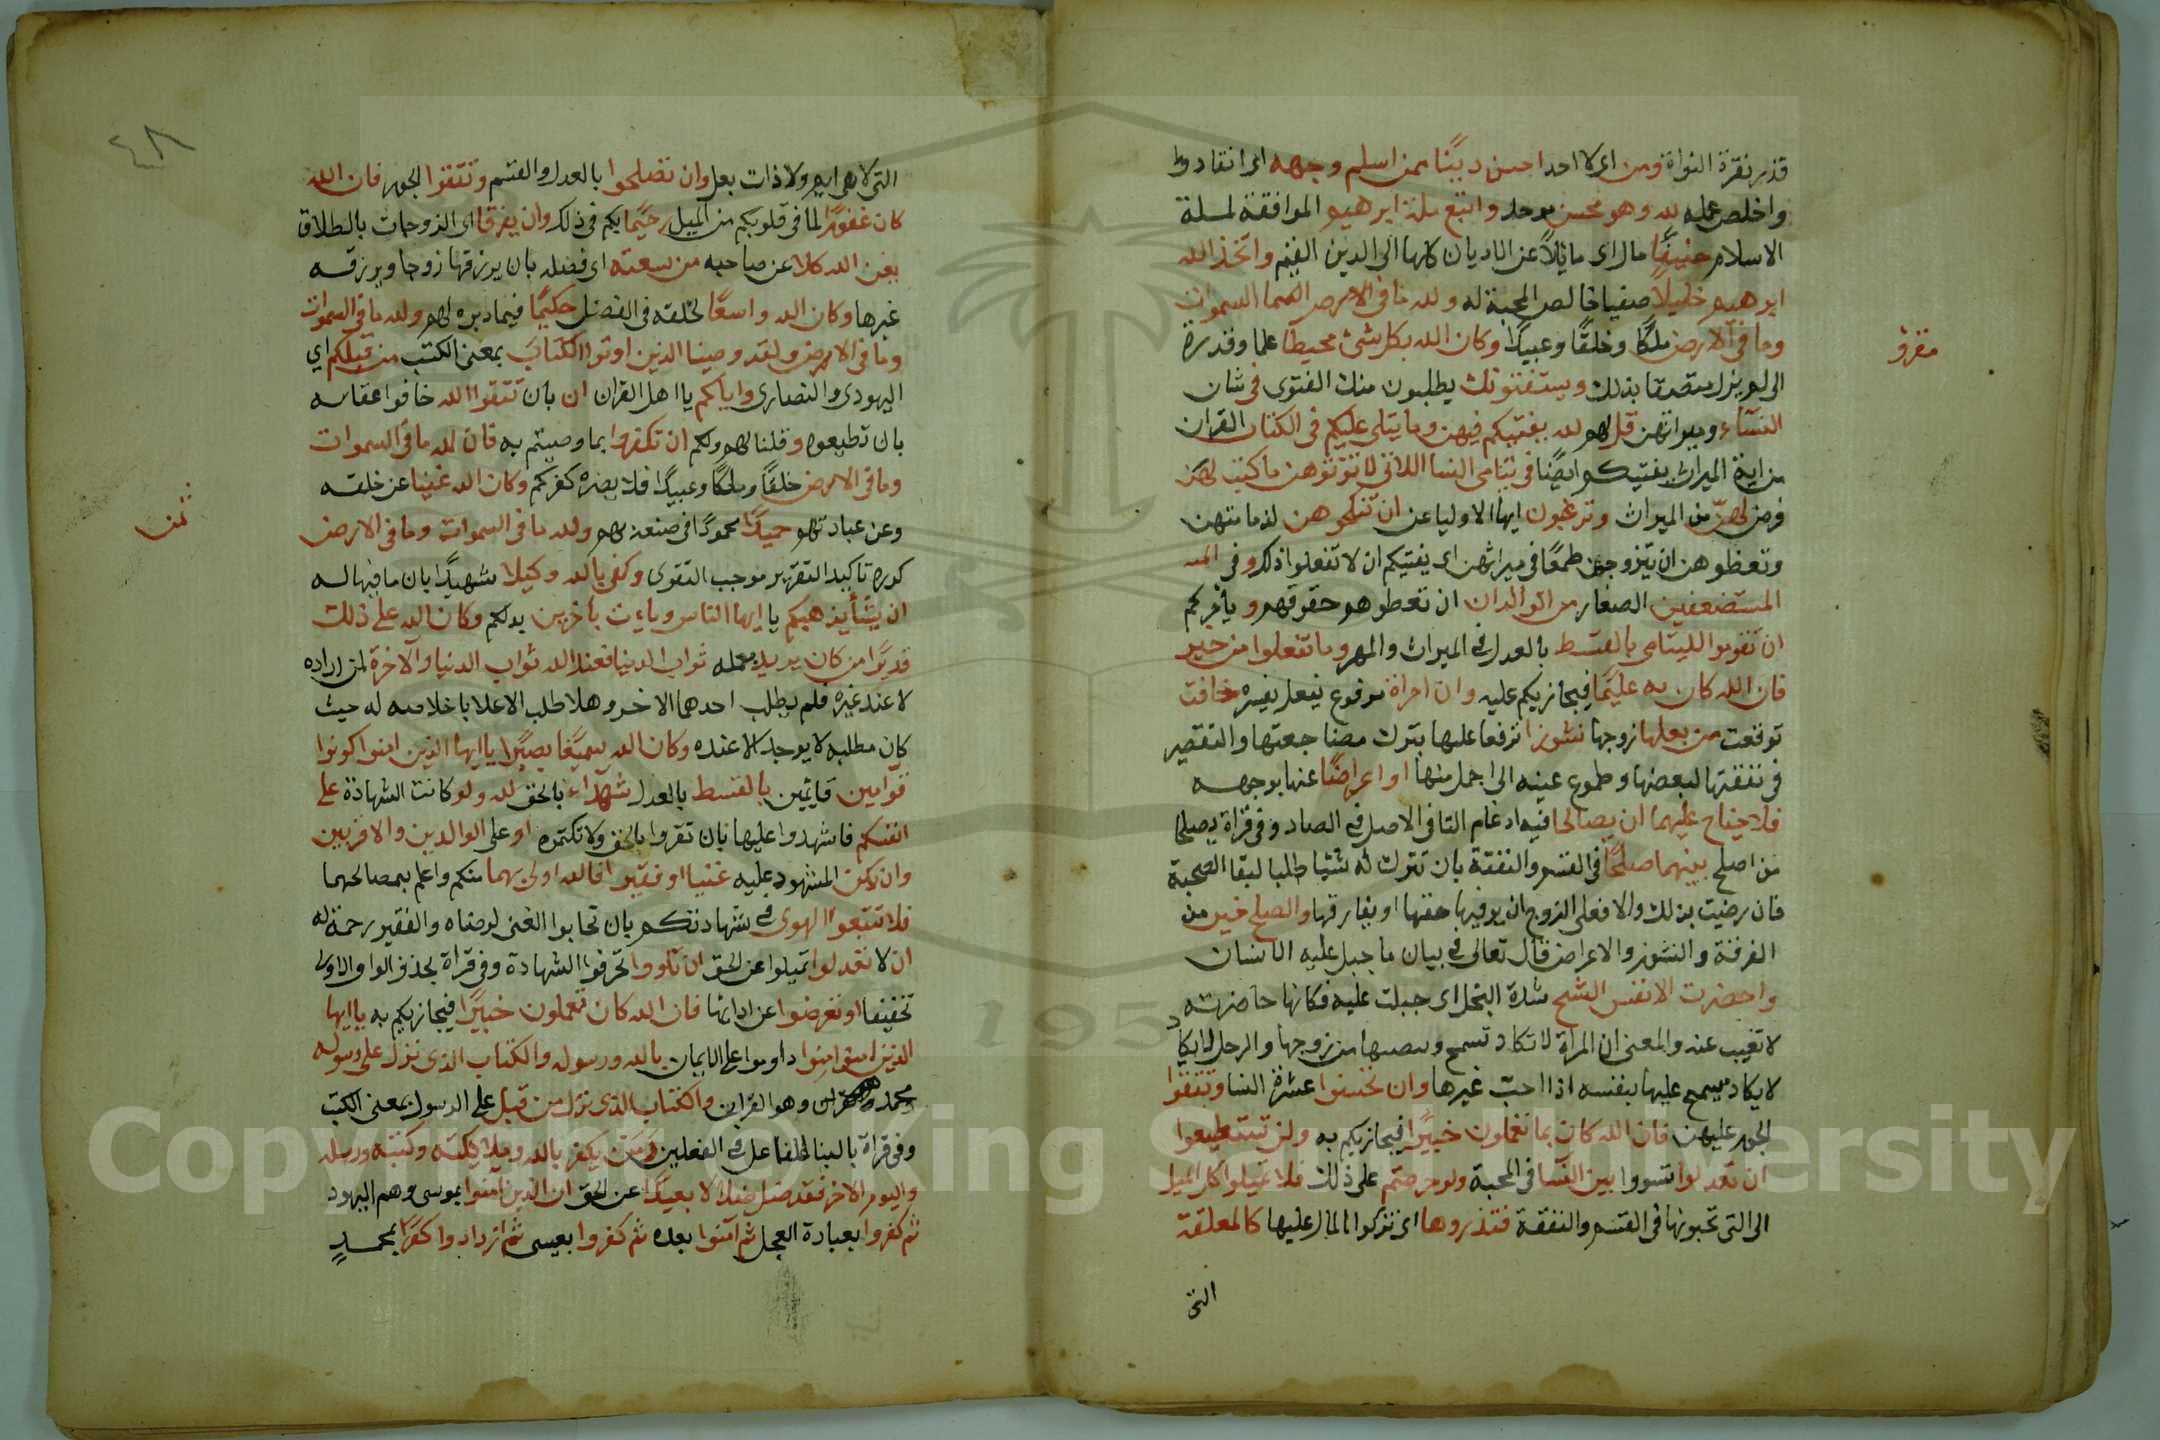 قدر نقرة النواة ومن اى لا احد احسن دينا ممن اسلم وجهه اى انقاد و
واخلص عمله لله وهو محسن موحد واتبع ملة ابرهيم الموافقة لملة
الاسلام حنيفا حال اى مائلا عن الاديان كلها الى الدين القيم واتخذ الله
ابرهيم خليلا صفيا خالص المحبة له ولله ما فى السموات
وما فى الارض ملكا وخلقا وعبيدا وكان الله بكل شئ محيطا علما وقدرة
اى لم يزل متصفا بذلك ويستفتونك يطلبون منك الفتوى فى شان
النساء وميراثهن قل لهم الله يفتيكم فيهن وما يتلى عليكم فى الكتاب القران
من اية الميراث يفتيكم ايضا فى يتامى النسا اللاتى لا تؤتونهن ما كتب لهن
فرض لهن من الميراث وترغبون ايها الاوليا عن ان تنكحوهن لدمامتهن
وتعضلوهن ان يتزوجن طمعا فى ميراثهن اى يفتيكم ان لا تفعلوا ذلك وفى
المستضعفين الصغار من الوالدان ان تعطوهم حقوقهم ويأمركم
ان تقوموا لليتامى بالقسط بالعدل فى الميراث والمهر وما تفعلوا من خير
فان الله كان به عليما فيجازيكم عليه وان امراة مرفوع بفعل يفسره خافت
توقعت من بعلها زوجها نشوزا ترفعا عليها بترك مضاجعتها والتقصير
فى نفقتها لبغضها وطموح عينه الى اجمل منها او اعراضا عنها بوجهه
فلا جناح عليهما ان يصالحا فيه ادغام التا فى الاصل فى الصاد وفى قراة يصلحا
من اصلح بينهما صلحا فى القسم والنفقة بان تترك له شئيا طلبا لبقا الصحبة
فان رضيت بذلك والا فعلى الزوج ان يوفيها حقها او يفارقها والصلح خير من
الفرقة والنشوز والاعراض قال تعالى فى بيان ما جبل عليه الانسان
واحضرت الانفس الشح شدة البخل اى جبلت عليه فكانها حاضرته
لا تغيب عنه والمعنى ان المراة لا تكاد تسمح بنصيبها من زوجها والرجل
لا يكاد يسمح عليها بنفسه اذا احب غيرها وان تحسنوا عشرة النسا وتتقوا
الجور عليهن فان الله كان بما تعملون خبيرا فيجازيكم به ولن تستطيعوا
ان تعدلوا تسووا بين النسا فى المحبة ولو حرصتم على ذلك فلا تميلوا كل الميل
الى التى تحبونها فى القسم والنفقة فتذروها اى تتركوا الممال عليها كالمعلقة
التى
مقرؤ
٤٨
التى لا هى ايم ولا ذات بعل وان تصلحوا بالعدل والقسم وتتقوا الجور فان الله
كان غفورا لما فى قلوبكم من الميل رحيما بكم فى ذلك وان يفرقا اى الزوجان بالطلاق
يغن الله كلا عن صاحبه من سعته اى فضله بان يرزقها زوجا ويرزقه
غيرها وكان الله واسعا لخلقه فى الفضل حكيما فيما دبره لهم ولله ما فى السموات
وما فى الارض ولقد وصينا الذين اوتوا الكتاب بمعنى الكتب من قبلكم اي
اليهودى والنصارى واياكم يا اهل القران ان بان تتقوا الله خافوا عقابه
بان تطيعوه وقلنا لهم ولكم ان تكفروا بما وصيتم به فان لله ما فى السموات
وما فى الارض خلقا وملكا وعبيدا فلا يضره كفركم وكان الله غنيا عن خلقه
وعن عبادتهم حميدا محمودا فى صنعه بهم ولله ما فى السموات وما فى الارض
كرره تاكيدا لتقرير موجب التقوى وكفى بالله وكيلا شهيدا بان ما فيها له
ان يشأ يذهبكم يا ايها الناس ويات بآخرين بدلكم وكان الله على ذلك
قديرا من كان يريد بعمله ثواب الدنيا فعند الله ثواب الدنيا والآخرة لمن اراده
لا عند غيره فلم يطلب احدهما الاخر وهلا طلب الاعلا باخلاصه له حيث
كان مطلبه لا يوجد الا عنده وكان الله سميعا بصيرا يا ايها الذين امنوا كونوا
قوامين قائمين بالقسط بالعدل شهداء بالحق لله ولو كانت الشهادة على
انفسكم فاشهدوا عليها بان تقروا بالحق ولا تكتموه او على الوالدين والاقربين
وان يكن المشهود عليه غنيا او فقيرا فالله اولى بهما منكم واعلم بمصالحهما
فلا تتبعوا الهوى فى شهادتكم بان تحابوا الغنى لرضاه والفقير رحمة له
ان لا تعدلوا تميلوا عن الحق ان تلووا تحرفوا الشهادة وفى قراة بحذف الواو الاولى
تخفيفا او تعرضوا عن ادائها فان الله كان تعملون خبيرا فيجازيكم به يا ايها
الذين امنوا امنوا داوموا على الايمان بالله ورسوله والكتاب الذى نزل على رسوله
محمد وهو القران والكتاب الذى نزل من قبل على الرسول بمعنى الكتب
وفى قراة بالبنا للفاعل فى الفعلين ومن يكفر بالله وملائكته وكتبه ورسله
واليوم الاخر فقد ضل ضلالا بعيدا عن الحق ان الذين آمنوا بموسى وهم اليهود
ثم كفروا بعبادة العجل ثم آمنوا بعده ثم كفروا بعيسى ثم ازدادوا كفرا بمحمد
ثمن
Copyright © King Saud University
195